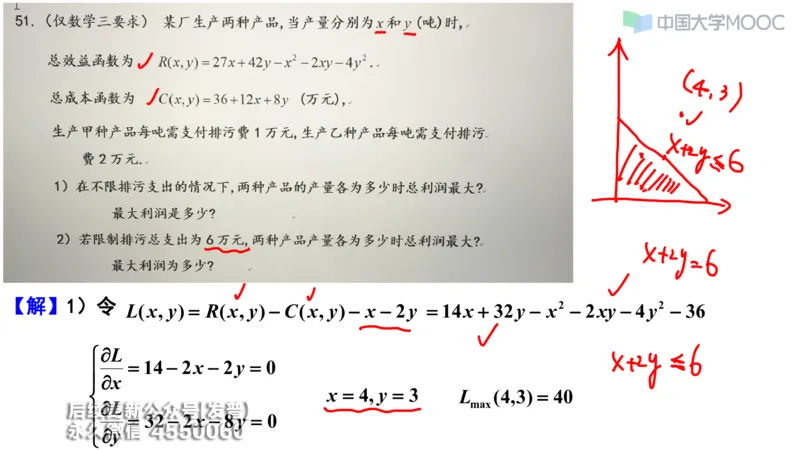 中国大学MOOC
51.（仅数学三要求） 某厂生产两种产品,当产量分别为 x 和 y (吨)时,
总效益函数为 ✓ R(x,y)=27x+42y−x²−2xy−4y².
总成本函数为 ✓ C(x,y)=36+12x+8y (万元),
生产甲种产品每吨需支付排污费 1 万元,生产乙种产品每吨需支付排污
费 2 万元.
1）在不限排污支出的情况下,两种产品的产量各为多少时总利润最大?
最大利润是多少?
2）若限制排污总支出为 6 万元,两种产品产量各为多少时总利润最大?
最大利润为多少?
(4,3)
x+2y≤6
x+2y=6
【解】1）令 L(x,y)=R(x,y)−C(x,y)−x−2y=14x+32y−x²−2xy−4y²−36
x+2y≤6
∂L/∂x=14−2x−2y=0
x=4,y=3 Lmax(4,3)=40
∂L/∂y=32−2x−8y=0
永久微信 4550060